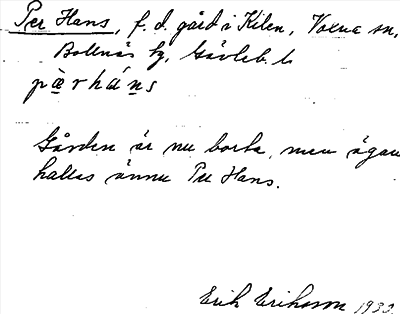 Per Hans, f. d. gård i Kilen, Voxna sn,
Bollnäs tg, Gävleb. l.
pæ̀rháns
Gården är nu borta, men ägaren
kallas ännu Per Hans.
Erik Eriksson 1930.